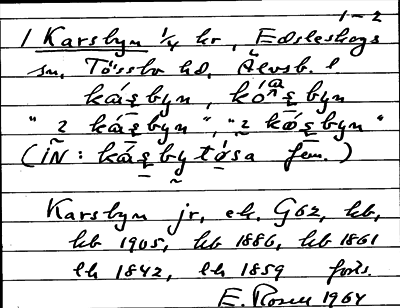 1-2
1 Karsbyn 1/4 hr, Edsleskogs
sn, Tössbo hd, Älvsb. l
ká̄ʂbyn, kó̄ʂbyn
" 2 ká̄ʂbyn", "2 kó̄ʂbyn"
(IN: kā̀ʂbytó̀sa fem.)
Karsbyn jr, ek. G62, kb,
hb 1905, hb 1886, hb 1861
lh 1842, lh 1859 förs.
E. Rosell 1964